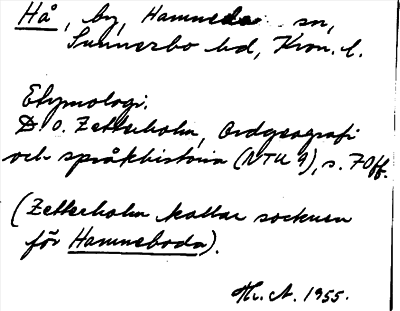 Hå, by, Hamneda sn,
Sunnerbo hd, Kron. l.
Etymologi.
D. O. Zetterholm, Ordgeografi
och språkhistoria (NTU 9), s. 70ff.
(Zetterholm kallar socknen
för Hamneboda).
Hr. A. 1955.